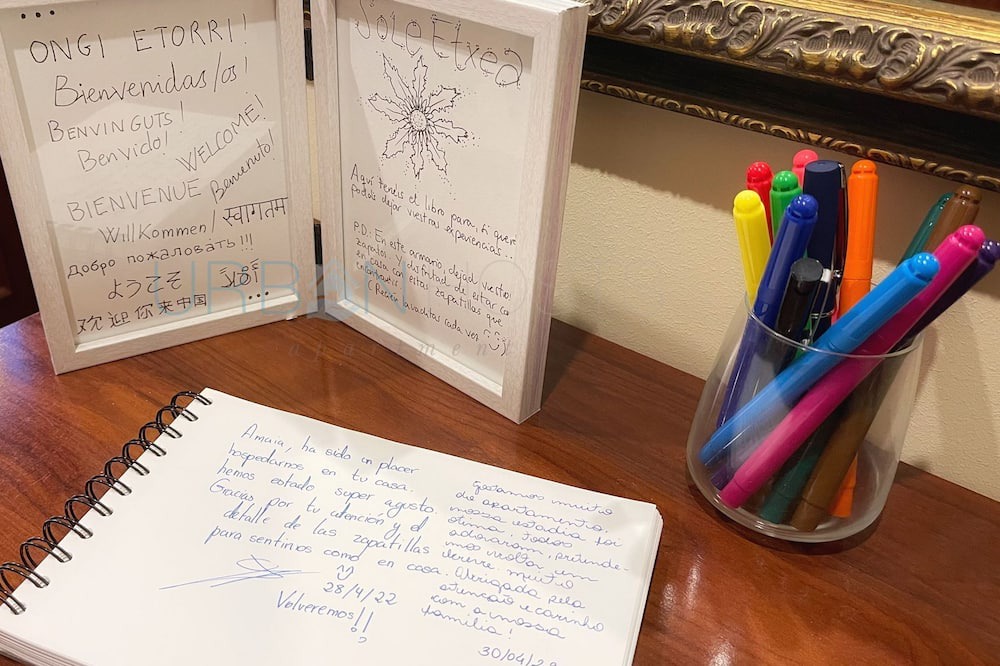 ONGI ETORRI!
Bienvenidas/os!
BENVINGUTS!
Benvido!
WELCOME!
BIENVENUE
Benvenuto!
Willkommen/स्वागतम
Добро пожаловать!!!
ようこそ
欢迎你来中国
Sole Etxea
Aquí tenéis el libro para, si queréis
podáis dejar vuestras experiencias...
P.D.: En este armario, dejad vuestros
zapatos y disfrutad de estar como
en casa con estas zapatillas que
encontraréis.
(Recién lavaditas cada vez
URBAN
apartment
Amaia, ha sido un placer
hospedarnos en tu casa.
hemos estado super agusto.
Gracias por tu atención y el
detalle de las zapatillas
para sentirnos como en casa.
28/4/22
Volveremos!!
gostamos muito
do apartamento,
nossa estadia foi
ótima, todos
adoraram, pretende-
mos voltar em
breve. muito
Obrigada pela
atenção e carinho
com a nossa
família!
30/04/22